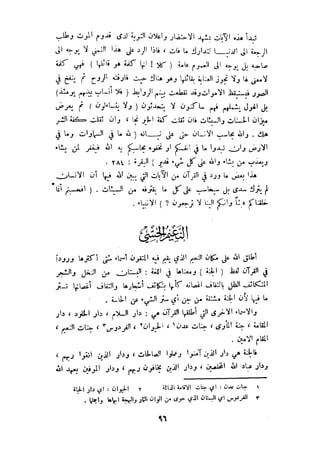 تبدأ هذه الآيات بمشهد الاحتضار واعلان التوبة لدى قدوم الموت وطلب
الرجعة الى الدنيا لتدارك ما فات ، فاذا الرد على هذا التمني لا يوجه الى
صاحبه بل يوجه الى العموم عامة ( كلا ! انها كلمة هو قائلها ) فهي كلمة
لا معنى لها ولا تجوز العناية بقائلها وهو هناك حيث فارقته الروح ثم ينفخ في
الصور فيستيقظ الاموات وقد تقطعت بينهم الروابط ( فلا أنساب بينهم يومئذ )
بل الهول يشملهم فهم ساكتون لا يتحدثون ( ولا يتساءلون ) ثم يعرض
ميزان الحسنات والسيئات فان ثقلت كفة الخير نجا ، وان ثقلت كفة الشر
هلك . والله يحاسب الانسان حتى على نيــاته ( لله ما في السماوات وما في
الارض وان تبدوا ما في أنفسكم او تخفوه يحاسبكم به الله فيغفر لمن يشاء
ويعذب من يشاء والله على كل شيء قدير ) البقرة : ٢٨٤ .
هذا بعض ما ورد في القرآن من الآيات التي يبين الله فيها أن الانسان
لم يترك سدى بل سيحاسب على كل ما يقترفه من السيئات . ( افحسبتم أنما
خلقناكم عبثاً وانكم الينا لا ترجعون ؟ ) الانبياء .
النعيم الحسّي
أطلق الله على مكان النعيم الذي يقيم فيه المتقون أسماء شتى أكثرها وروداً
في القرآن لفظ ( الجنة ) ومعناها في اللغة : البستان من النخل والشجر
المتكاثف الظل بالتفاف اغصانه كأنها بتكاثف أشجارها والتفاف أغصانها تستر
ما فيها لأن الجنة مشتقة من جن أي ستر الشيء عن الحاسة .
والاسماء الاخرى التي أطلقها القرآن هي : دار السلام ، دار الخلود ، دار
المقامة ، جنة المأوى ، جنات عدن ١ ، الحيوان ٢ ، الفردوس ٣ ، جنات النعيم ،
المقام الامين .
فالجنة هي دار الذين آمنوا وعملوا الصالحات ، ودار الذين اتقوا ربهم ،
ودار عباد الله المخلصين ، ودار الذين يخافون ربهم ، ودار الموفين بعهد الله
١ جنات عدن : اي جنات الاقامة الدائمة ٢ الحيوان : اي دار الحياة
٣ الفردوس اي البستان الذي حوى من الوان الثمار والبهجة ابهاها واجملها .
٩٦